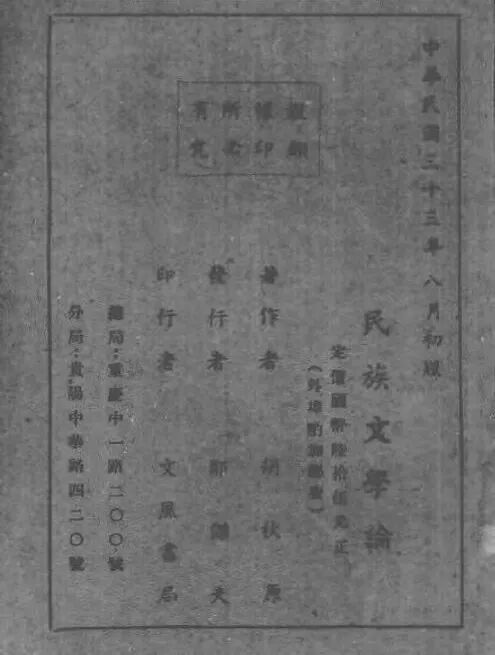 中華民國三十三年八月初版
版權所有
翻印必究
民族文學論
定價國幣陸拾伍元正
(外埠酌加費)
著作者 胡秋原
發行者 夫
印行者 文風書局
總局：重慶中一路二〇〇號
分局：貴陽中華路四二〇號